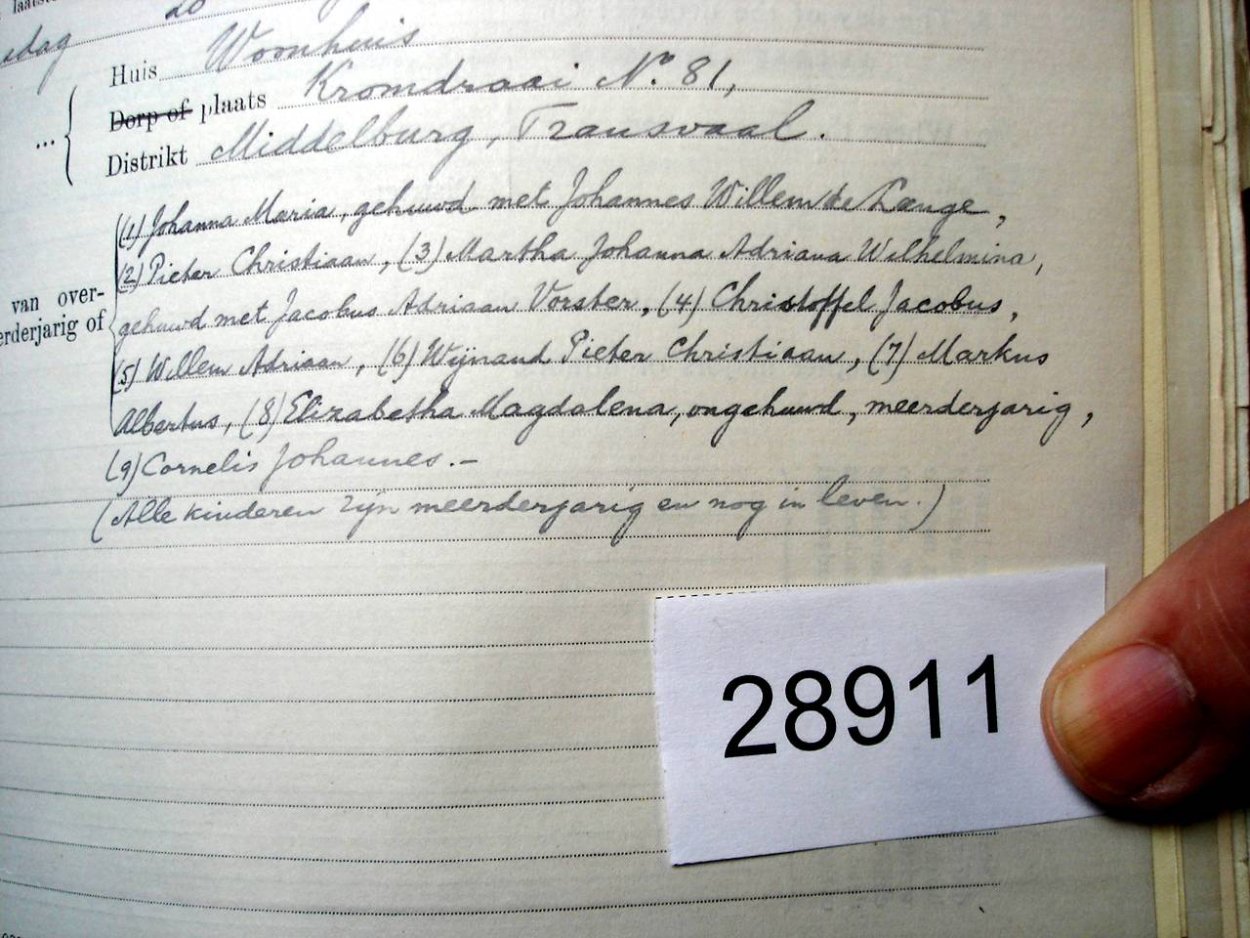 20
Huis Woonhuis
Dorp of plaats Kromdraai No. 81,
Distrikt Middelburg, Transvaal.
(1) Johanna Maria, gehuwd met Johannes Willem de Lange,
(2) Pieter Christiaan, (3) Martha Johanna Adriana Wilhelmina,
van over-
gehuwd met Jacobus Adriaan Vorster, (4) Christoffel Jacobus,
erderjarig of
(5) Willem Adriaan, (6) Wijnand Pieter Christiaan, (7) Markus
Albertus, (8) Elizabetha Magdalena, ongehuwd, meerderjarig,
(9) Cornelis Johannes.–
(Alle kinderen zijn meerderjarig en nog in leven.)
28911